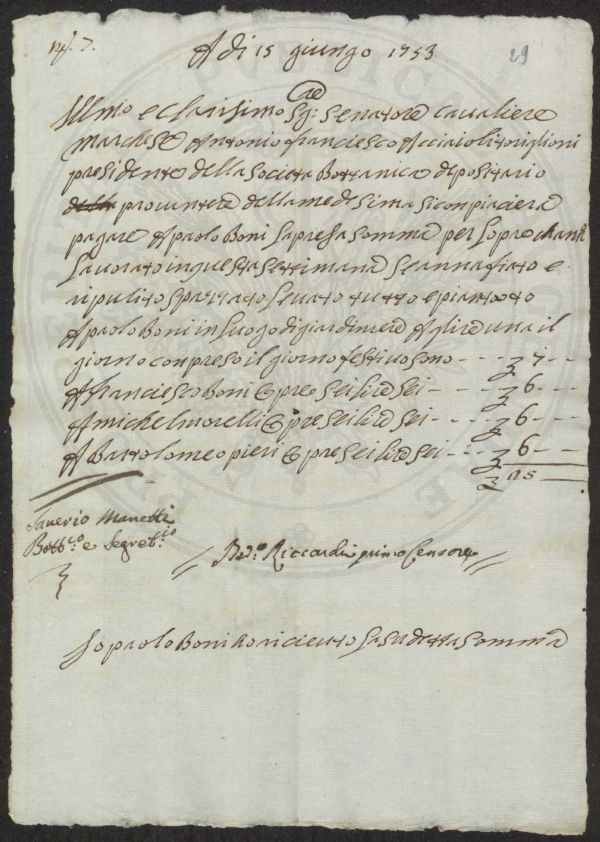 A di 15 giungo 1753
29
Illmo e Clarisimo Sg:re Senatore Caualiere
Marchese Antonio franciesco Acciaioli toriglioni
presidente della Societta Bottanica depositario
della prouuntere della mede Sima Siconpiacierà
pagare A paolo Boni La presa Somma per Lopre chanà
Lauorato in questa Settimana Seannafiato e
ripulito Spazzato Leuato tutto e piantato
A paolo Boni in Luogo di giardiniere A glire una il
giorno conpreso il giorno festiuo sono - - - 7 - -
A franciesco Boni opre Sei lire Sei - - - 6 - -
A michel morelli opre Sei lire Sei - - - 6 - -
A Bartolomeo pieri opre Sei lire Sei - - - 6 - -
25
Sauerio Manetti
Bott:co e Segret:rio
Bed:o Riccardi primo Censore
Io paolo Boni ho riceuuto La Sudetta Somma